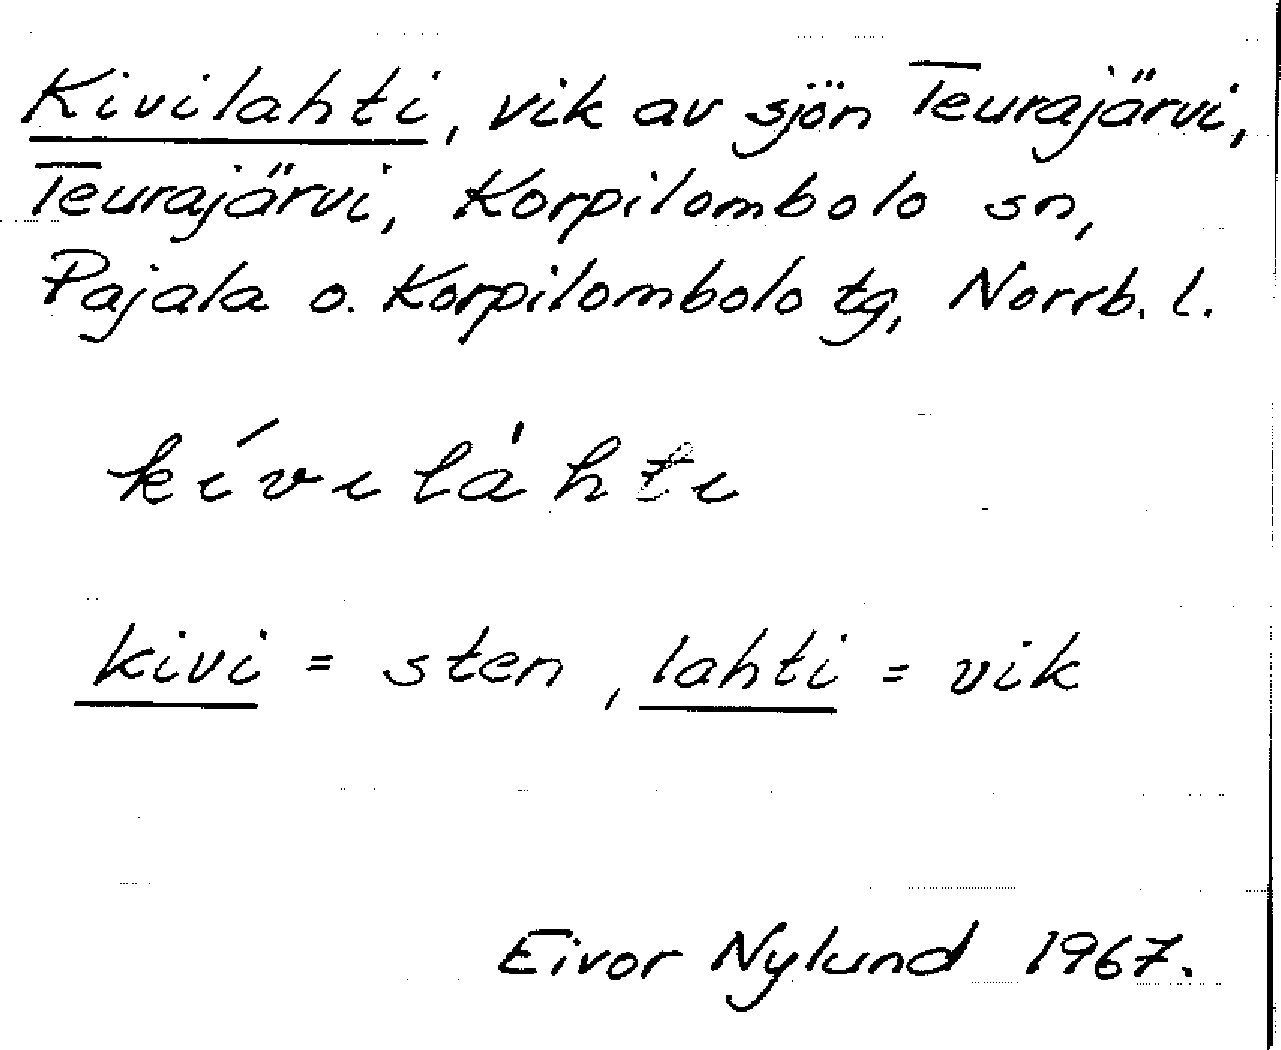 Kivilahti, vik av sjön Teurajärvi,
Teurajärvi, Korpilombolo sn,
Pajala o. Korpilombolo tg, Norrb. l.
kívilȧhti
kivi = sten, lahti = vik
Eivor Nylund 1967.